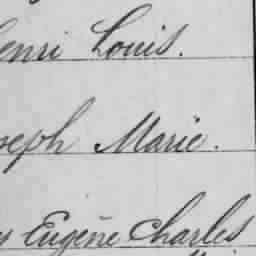 Henri Louis.
Joseph Marie.
Eugène Charles